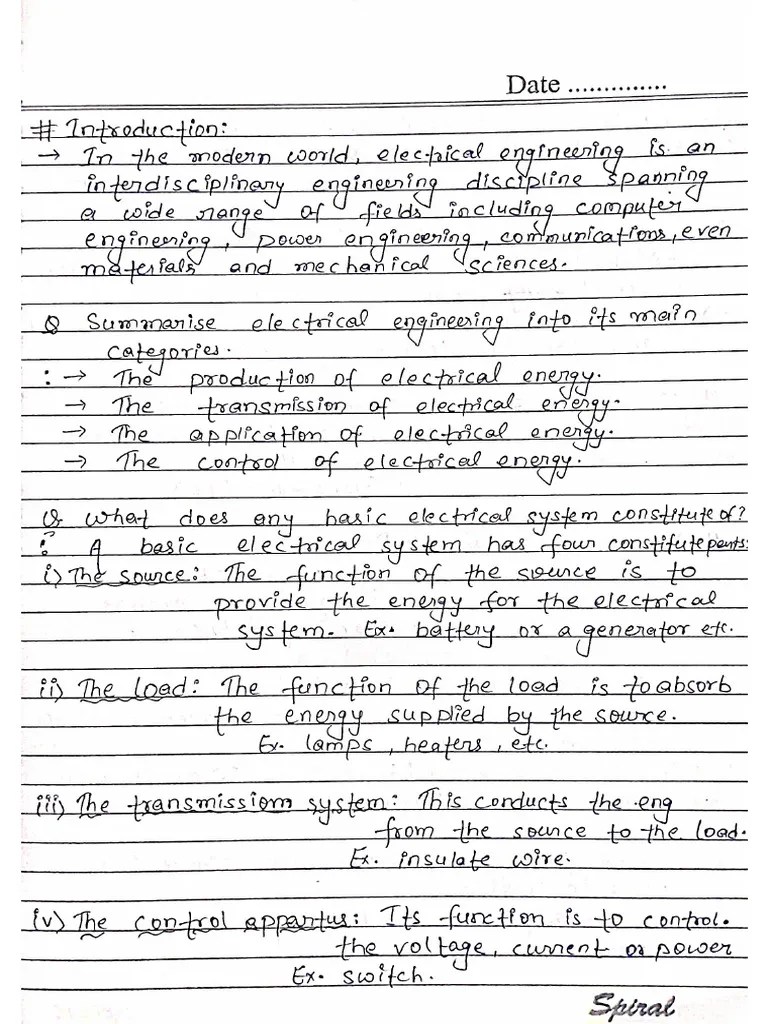 Date ..............
# Introduction:
→ In the modern world, electrical engineering is an
interdisciplinary engineering discipline spanning
a wide range of fields including computer
engineering, power engineering, communications, even
materials and mechanical sciences.
Q Summarise electrical engineering into its main
categories.
: → The production of electrical energy.
→ The transmission of electrical energy.
→ The application of electrical energy.
→ The control of electrical energy.
Q What does any basic electrical system constitute of?
: A basic electrical system has four constitute parts:
i) The source: The function of the source is to
provide the energy for the electrical
system. Ex. battery or a generator etc.
ii) The load: The function of the load is to absorb
the energy supplied by the source.
Ex. lamps, heaters, etc.
iii) The transmission system: This conducts the eng
from the source to the load.
Ex. insulate wire.
iv) The control appartus: Its function is to control.
the voltage, current or power
Ex. switch.
Spiral